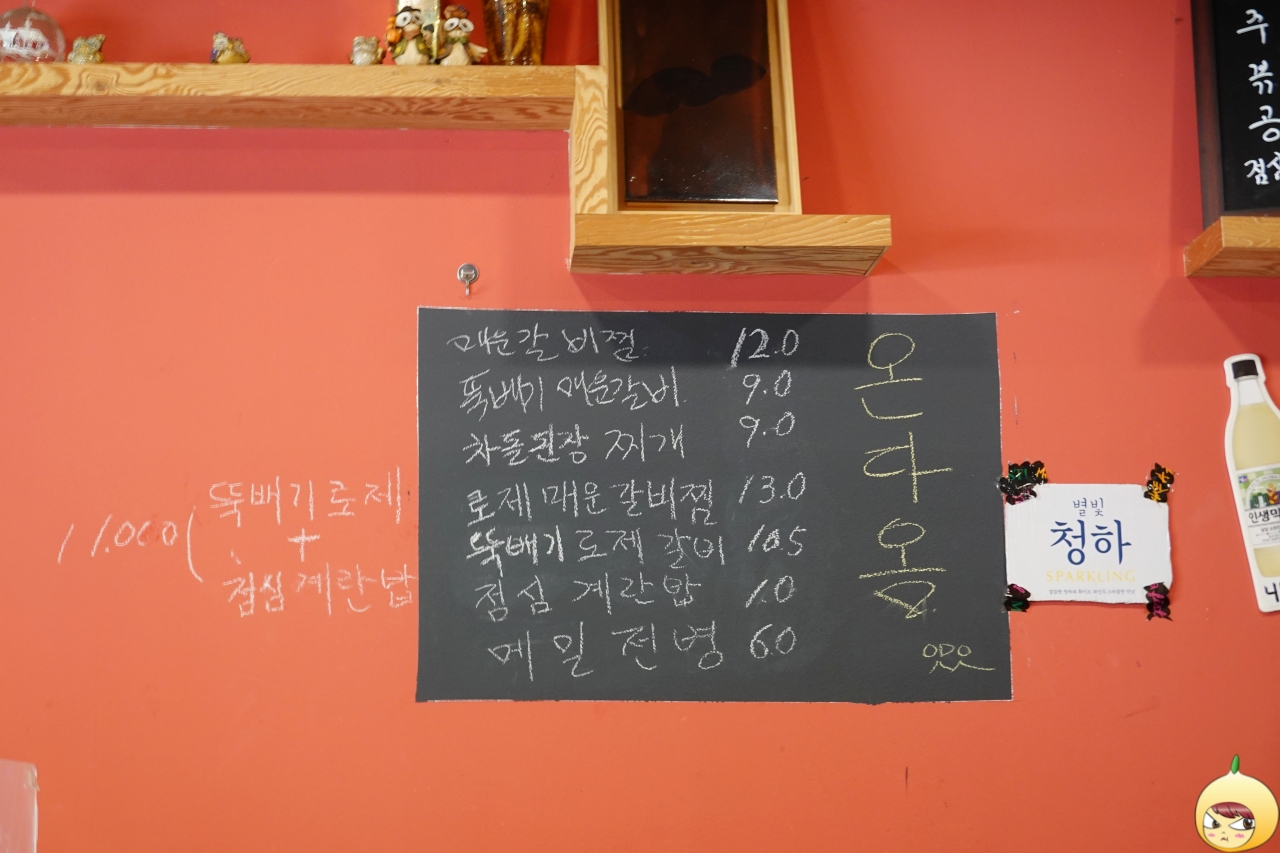 매운갈비찜 12.0
뚝배기 매운갈비 9.0
차돌된장 찌개 9.0
로제 매운갈비찜 13.0
뚝배기 로제 갈비 10.5
점심 계란밥 1.0
메밀전병 6.0
온
다
옴
뚝배기로제
+
점심계란밥
11.000(
별빛
청하
SPARKLING
주
뷰
공
점심
인생막